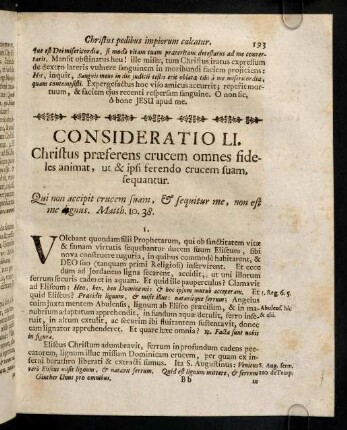 Christus pedibus impiorum calcatur. 193
que est Dei misericordia, si modo vitam tuam praeteritam detestatus ad me conver-
taris. Mansit obstinatus heu! ille miser, tum Christus iratus expressum
de dextro lateris vulnere sanguinem in moribundi faciem projiciens:
Hic, inquit, Sanguis meus in die judicii testis erit oblata tibi à me misericordiae,
quam contempsisti. Expergefactus hoc viso amicus accurrit; reperit mor-
tuum, & faciem ejus recenti respersam sanguine. O non sic,
ô bone JESU apud me.
CONSIDERATIO LI.
Christus præferens crucem omnes fide-
les animat, ut & ipsi ferendo crucem suam,
sequantur.
Qui non accipit crucem suam, & sequitur me, non est
me dignus. Matth. 10. 38.
I.
VOlebant quondam filii Prophetarum, qui ob sanctitatem vitæ
& famam virtutis sequebantur ducem suum Elisæum, sibi
nova construere tuguria, in quibus commodè habitarent, &
DEO suo (tanquam primi Religiosi) inservirent. Et ecce
dum ad Jordanem ligna secarent, accidit, ut uni illorum
ferrum securis caderet in aquam. Et quid ille pauperculus? Clamavit
ad Elisæum: Heu, heu, heu Domine mi! & hoc ipsum mutuò acceperam. Et
quid Elisæus? Præcidit lignum, & misit illuc: natavitque ferrum; Angelus
enim juxta mentem Abulensis, lignum ab Elisæo præcisum, & in ma-
nubrium adaptatum apprehendit, in fundum aquæ detulit, ferro inse-
ruit, in altum extulit, ac securim ibi fluitantem sustentavit, donec
eam lignator apprehenderet. Et quare hæc omnia? 10. Facta sunt nobis
in figura.
4. Reg. 6. 5.
Abulens. hic
q. di.
Elisæus Christum adumbravit, ferrum in profundum cadens pec-
catorem, lignum illuc missum Dominicam crucem, per quam ex in-
ferni barathro liberati & extracti sumus. Ita S. Augustinus: Veniens
verò Elisæus misit lignum, & natavit ferrum. Quid est lignum mittere, & ferrum
S. Aug. serm.
210 de Temp.
Ginther Unus pro omnibus. Bb in